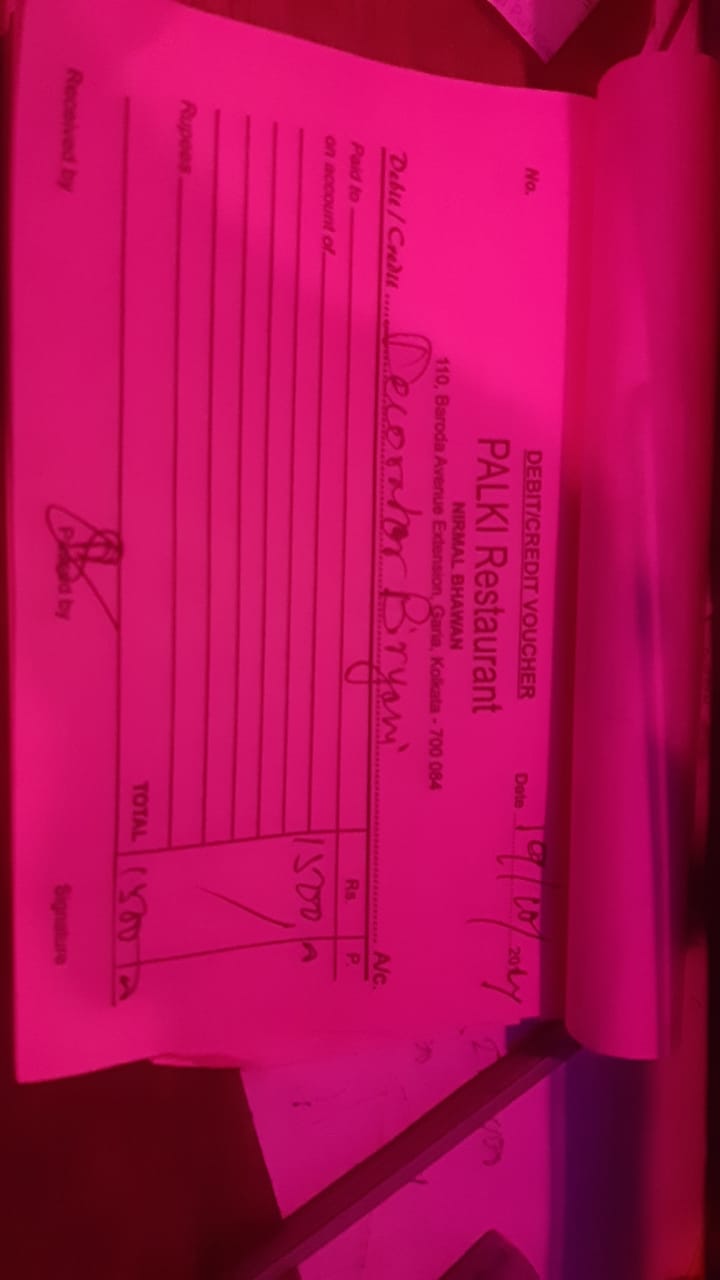 DEBIT/CREDIT VOUCHER
No. Date 19/10/2024
PALKI Restaurant
NIRMAL BHAWAN
110, Baroda Avenue Extension, Garia, Kolkata - 700 084
Debit / Credit Decorator Biryani A/c.
Paid to Rs. P.
on account of 1500
Rupees
TOTAL 1500
Received by Passed by Signature